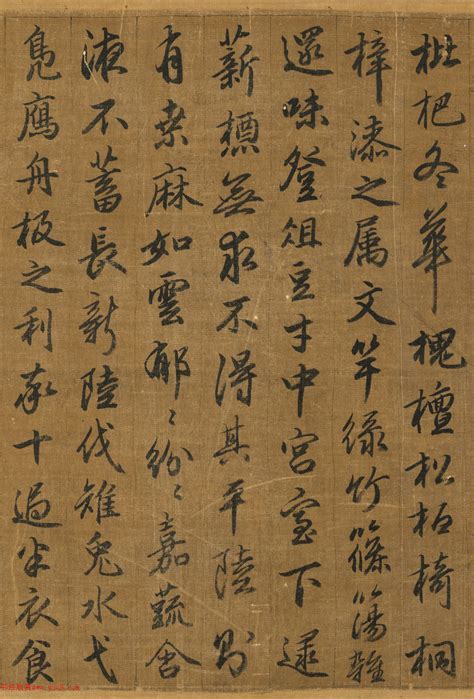 枇杷冬華槐檀松柏椅桐
梓漆之属文竿緑竹篠簜雜
遝味登俎豆才中宮室下逮
薪槱無求不得其平陸則
有桒麻如雲郁〻紛〻嘉蔬含
液不蓄長新陸伐雉兔水弋
鳧鴈舟楫之利率十過半衣食